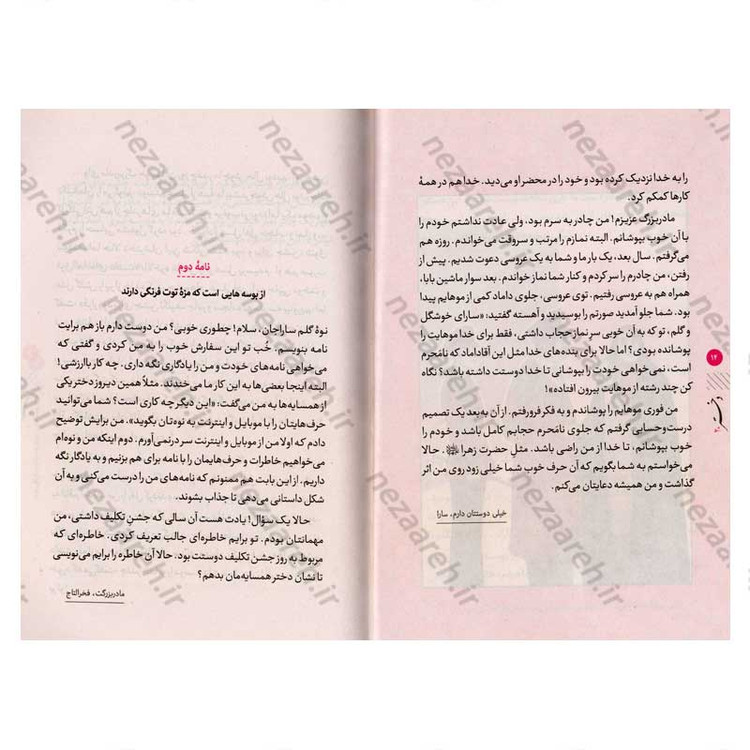 را به خدا نزدیک کرده بود و خود را در محضر او می‌دید. خدا هم در همهٔ
کارها کمکم کرد.
مادربزرگ عزیزم! من چادر به سرم بود، ولی عادت نداشتم خودم را
با آن خوب بپوشانم. البته نمازم را مرتب و سروقت می‌خواندم. روزه هم
می‌گرفتم. سال بعد، یک بار ما و شما به یک عروسی دعوت شدیم. پیش از
رفتن، من چادرم را سر کردم و کنار شما نماز خواندم. بعد سوار ماشین بابا،
همراه هم به عروسی رفتیم. توی عروسی، جلوی داماد کمی از موهایم پیدا
بود. شما جلو آمدید صورتم را بوسیدید و آهسته گفتید: «سارای خوشگل
و گلم، تو که به آن خوبی سرِ نماز حجاب داشتی، فقط برای خدا موهایت را
پوشانده بودی؟ اما حالا برای بنده‌های خدا مثل این آقاداماد که نامَحرم
است، نمی‌خواهی خودت را بپوشانی تا خدا دوستت داشته باشد؟ نگاه
کن چند رشته از موهایت بیرون افتاده»!
من فوری موهایم را پوشاندم و به فکر فرورفتم. از آن به بعد یک تصمیم
درست‌وحسابی گرفتم که جلوی نامَحرم حجابم کامل باشد و خودم را
خوب بپوشانم، تا خدا از من راضی باشد. مثل حضرت زهرا. حالا
می‌خواستم به شما بگویم که آن حرف خوب شما خیلی زود روی من اثر
گذاشت و من همیشه دعایتان می‌کنم.
خیلی دوستتان دارم، سارا
۱۴
نامهٔ دوم
از بوسه هایی است که مزهٔ توت فرنگی دارند
نوهٔ گلم ساراجان، سلام! چطوری خوبی؟ من دوست دارم باز هم برایت
نامه بنویسم. خُب تو این سفارش خوب را به من کردی و گفتی که
می‌خواهی نامه‌های خودت و من را یادگاری نگه داری. چه کار باارزشی!
البته اینجا بعضی‌ها به این کار ما می‌خندند. مثلاً همین دیروز دختر یکی
از همسایه‌ها به من می‌گفت: «این دیگر چه کاری است؟ شما می‌توانید
حرف‌هایتان را با موبایل و اینترنت به نوه‌تان بگوید». من برایش توضیح
دادم که اولا من از موبایل و اینترنت سر درنمی‌آورم. دوم اینکه من و نوه‌ام
می‌خواهیم خاطرات و حرف‌هایمان را با نامه برای هم بزنیم و به یادگار نگه
داریم. از این بابت هم ممنونم که نامه‌های من را درست می‌کنی و به آن
شکل داستانی می‌دهی تا جذاب بشوند.
حالا یک سؤال! یادت هست آن سالی که جشن تکلیف داشتی، من
مهمانتان بودم. تو برایم خاطره‌ای جالب تعریف کردی. خاطره‌ای که
مربوط به روز جشن تکلیف دوستت بود. حالا آن خاطره را برایم می‌نویسی
تا نشان دختر همسایه‌مان بدهم؟
مادربزرگت، فخرالتاج
nezaareh.ir